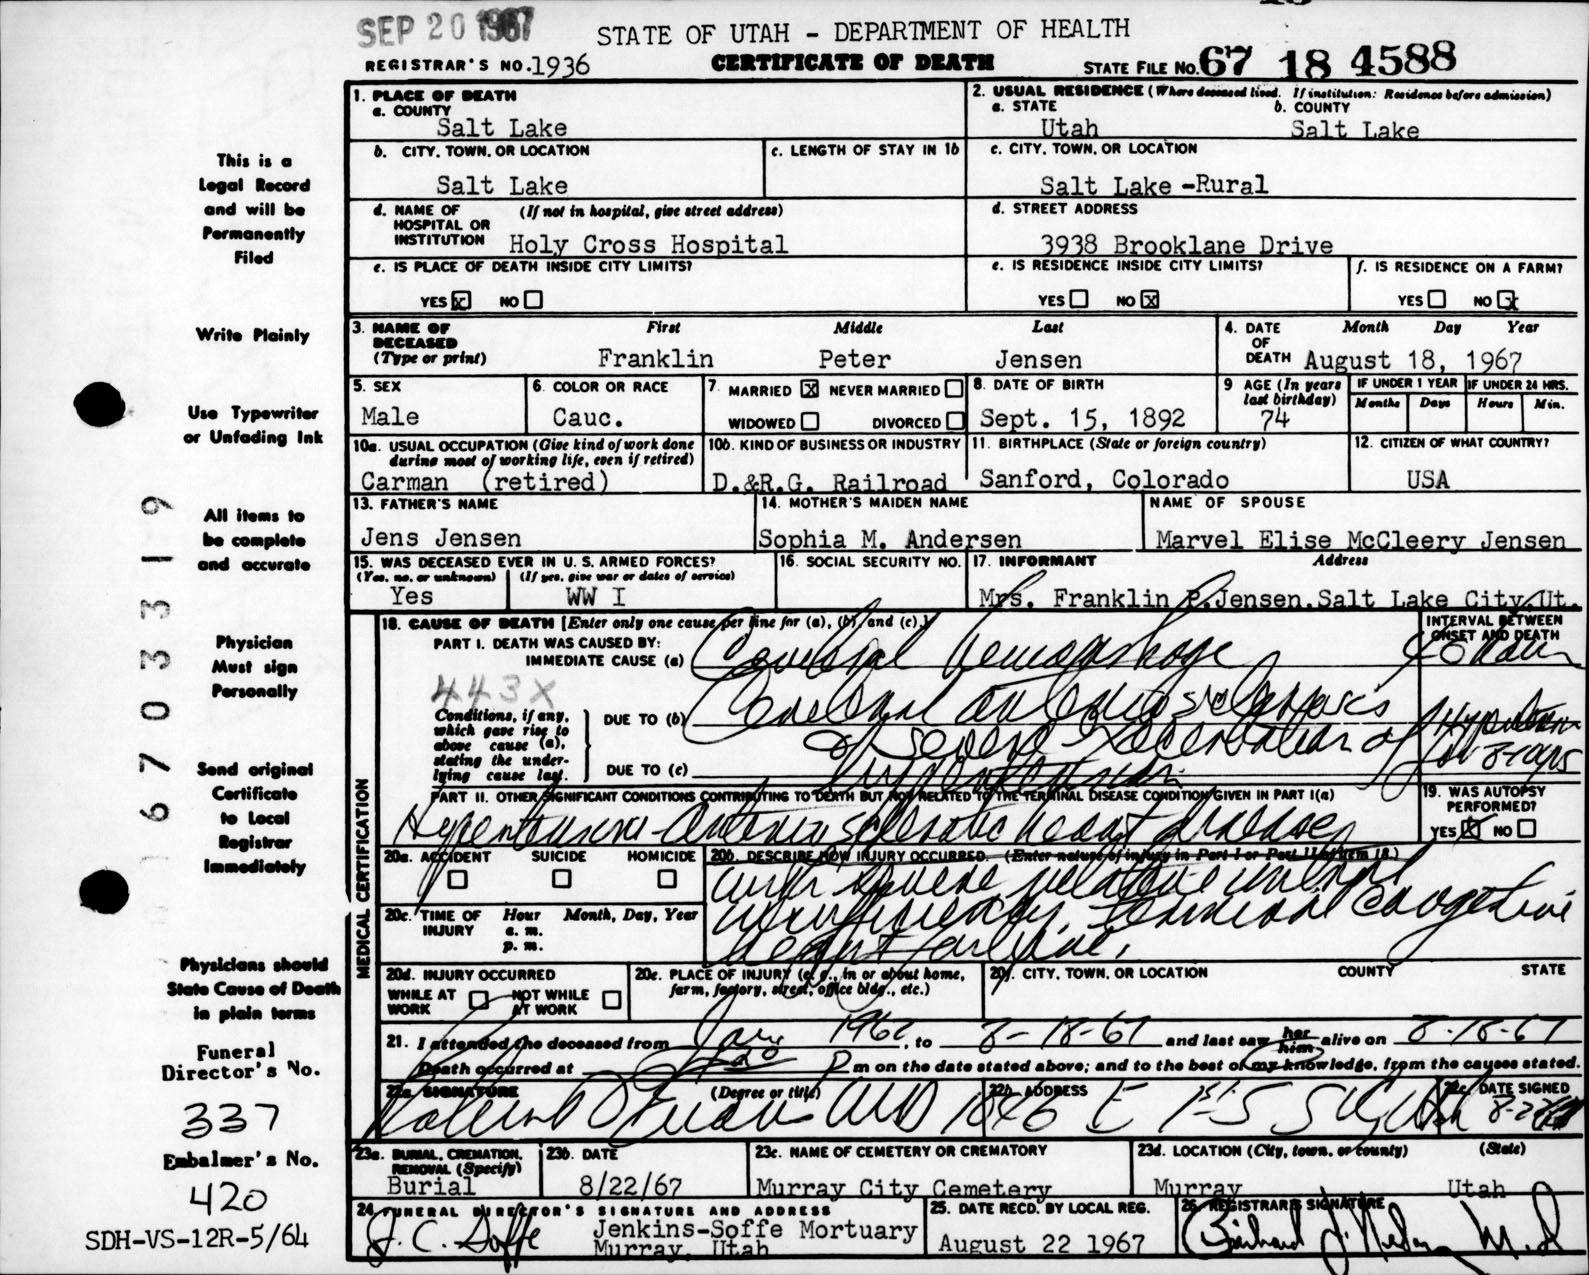 SEP 20 1967
STATE OF UTAH - DEPARTMENT OF HEALTH
REGISTRAR'S NO. 1936
CERTIFICATE OF DEATH
STATE FILE NO. 67 18 4588
This is a
Legal Record
and will be
Permanently
Filed
Write Plainly
Use Typewriter
or Unfading Ink
All items to
be complete
and accurate
Physician
Must sign
Personally
Send original
Certificate
to Local
Registrar
Immediately
Physicians should
State Cause of Death
in plain terms
Funeral
Director's No.
337
Embalmer's No.
420
SDH-VS-12R-5/64
6 7 0 3 3 1 9
1. PLACE OF DEATH
a. COUNTY
Salt Lake
2. USUAL RESIDENCE (Where deceased lived. If institution: Residence before admission)
a. STATE b. COUNTY
Utah Salt Lake
b. CITY, TOWN, OR LOCATION
Salt Lake
c. LENGTH OF STAY IN 1b
c. CITY, TOWN, OR LOCATION
Salt Lake -Rural
d. NAME OF (If not in hospital, give street address)
HOSPITAL OR
INSTITUTION Holy Cross Hospital
d. STREET ADDRESS
3938 Brooklane Drive
e. IS PLACE OF DEATH INSIDE CITY LIMITS?
YES x NO
e. IS RESIDENCE INSIDE CITY LIMITS?
YES NO x
f. IS RESIDENCE ON A FARM?
YES NO x
3. NAME OF First Middle Last
DECEASED
(Type or print) Franklin Peter Jensen
4. DATE Month Day Year
OF
DEATH August 18, 1967
5. SEX
Male
6. COLOR OR RACE
Cauc.
7. MARRIED x NEVER MARRIED
WIDOWED DIVORCED
8. DATE OF BIRTH
Sept. 15, 1892
9 AGE (In years
last birthday)
74
IF UNDER 1 YEAR
Months Days
IF UNDER 24 HRS.
Hours Min.
10a. USUAL OCCUPATION (Give kind of work done
during most of working life, even if retired)
Carman (retired)
10b. KIND OF BUSINESS OR INDUSTRY
D.&R.G. Railroad
11. BIRTHPLACE (State or foreign country)
Sanford, Colorado
12. CITIZEN OF WHAT COUNTRY?
USA
13. FATHER'S NAME
Jens Jensen
14. MOTHER'S MAIDEN NAME
Sophia M. Andersen
NAME OF SPOUSE
Marvel Elise McCleery Jensen
15. WAS DECEASED EVER IN U. S. ARMED FORCES?
(Yes, no, or unknown) (If yes, give war or dates of service)
Yes WW I
16. SOCIAL SECURITY NO.
17. INFORMANT Address
Mrs. Franklin P. Jensen, Salt Lake City, Ut.
MEDICAL CERTIFICATION
18. CAUSE OF DEATH [Enter only one cause per line for (a), (b) and (c).]
PART I. DEATH WAS CAUSED BY:
IMMEDIATE CAUSE (a) Cerebral hemorrhage
INTERVAL BETWEEN
ONSET AND DEATH
443X
Conditions, if any,
which gave rise to
above cause (a),
stating the under-
lying cause last.
DUE TO (b) Cerebral arteriosclerosis
& severe exacerbation of
DUE TO (c) hypertension.
Hypertension
for 8 yrs
PART II. OTHER SIGNIFICANT CONDITIONS CONTRIBUTING TO DEATH BUT NOT RELATED TO THE TERMINAL DISEASE CONDITION GIVEN IN PART I(a)
Hypertensive-arteriosclerotic heart disease
with severe relative mitral
insufficiency, terminal congestive
heart failure.
19. WAS AUTOPSY
PERFORMED?
YES x NO
20a. ACCIDENT SUICIDE HOMICIDE
20b. DESCRIBE HOW INJURY OCCURRED. (Enter nature of injury in Part I or Part II of item 18.)
20c. TIME OF Hour Month, Day, Year
INJURY a. m.
p. m.
20d. INJURY OCCURRED
WHILE AT WORK NOT WHILE AT WORK
20e. PLACE OF INJURY (e. g., in or about home,
farm, factory, street, office bldg., etc.)
20f. CITY, TOWN, OR LOCATION COUNTY STATE
21. I attended the deceased from Jan. 1962, to 8-18-67 and last saw her him alive on 8-18-67
Death occurred at P m on the date stated above; and to the best of my knowledge, from the causes stated.
22a. SIGNATURE (Degree or title)
MD
22b. ADDRESS
22c. DATE SIGNED
23a. BURIAL, CREMATION,
REMOVAL (Specify)
Burial
23b. DATE
8/22/67
23c. NAME OF CEMETERY OR CREMATORY
Murray City Cemetery
23d. LOCATION (City, town, or county) (State)
Murray Utah
24. FUNERAL DIRECTOR'S SIGNATURE AND ADDRESS
J. C. Soffe Jenkins-Soffe Mortuary
Murray, Utah
25. DATE RECD. BY LOCAL REG.
August 22 1967
26. REGISTRAR'S SIGNATURE